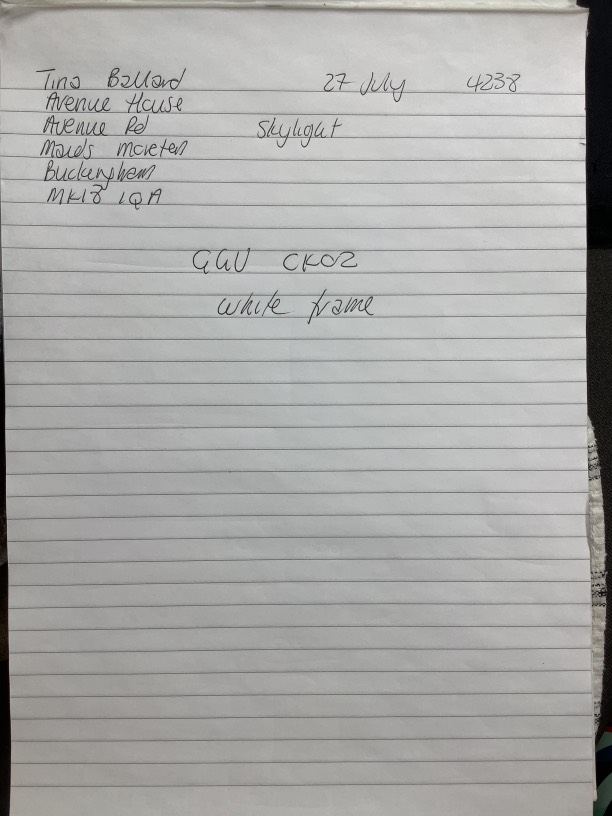 Tina Ballard 27 July 4238
Avenue House
Avenue Rd Skylight
Maids Moreton
Buckingham
MK18 1QA
GGU CK02
white frame